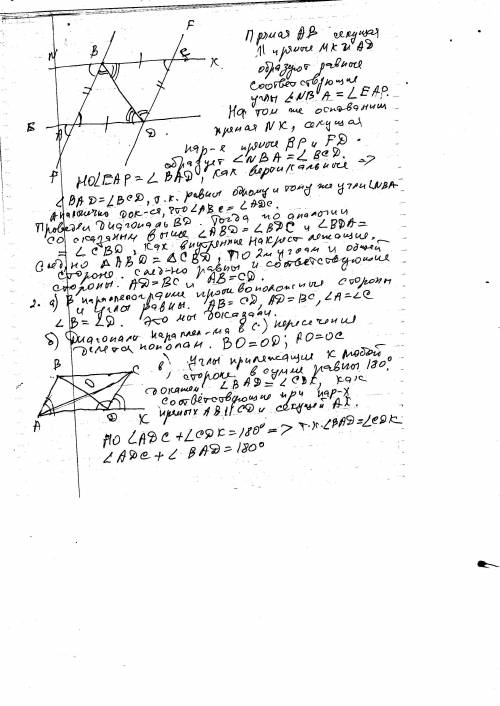 Прямая AB секущая
|| прямые NK и AD
образуют равные
соответствующие
углы ∠NBA = ∠EAP.
На том же основании
прямая NK, секущая
пар-е прямые BP и FD.
образует ∠NBA = ∠BCD.
НО ∠EAP = ∠BAD, как вертикальные =>
∠BAD = ∠BCD, т.к. равны одному и тому же углу ∠NBA
Аналогично док-ся, что ∠ABC = ∠ADC.
Провели диагональ BD. Тогда по аналогии
со сказанным выше ∠ABD = ∠BDC и ∠BDA =
= ∠CBD, как внутренние накрест лежащие.
След-но ΔABD = ΔCBD, по 2м углам и общей
стороне. След-но равны и соответствующие
стороны. AD = BC и AB = CD.
2. а) В параллелограмме противоположные стороны
и углы равны. AB = CD, AD = BC, ∠A = ∠C
∠B = ∠D. Это мы доказали.
б) Диагонали параллел-ма в (.) пересечения
делятся пополам. BO = OD; AO = OC
в) Углы прилежащие к любой
стороне в сумме равны 180°.
Докажем ∠BAD = ∠CDK, как
соответствующие при пар-х
прямых AB || CD и секущей AK.
НО ∠ADC + ∠CDK = 180° => т.к. ∠BAD = ∠CDK
∠ADC + ∠BAD = 180°
N
B
F
C
K
E
A
D
P
B
C
O
A
D
K